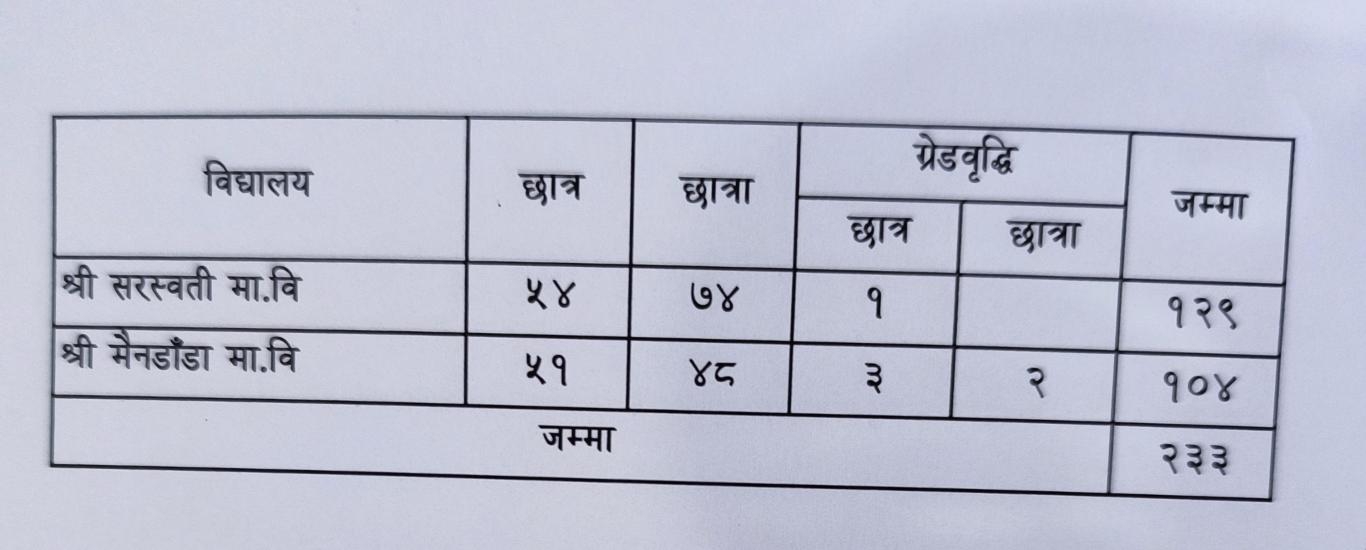 विद्यालय छात्र छात्रा ग्रेडवृद्धि जम्मा
छात्र छात्रा
श्री सरस्वती मा.वि ५४ ७४ १ १२९
श्री मैनडाँडा मा.वि ५१ ४८ ३ २ १०४
जम्मा २३३